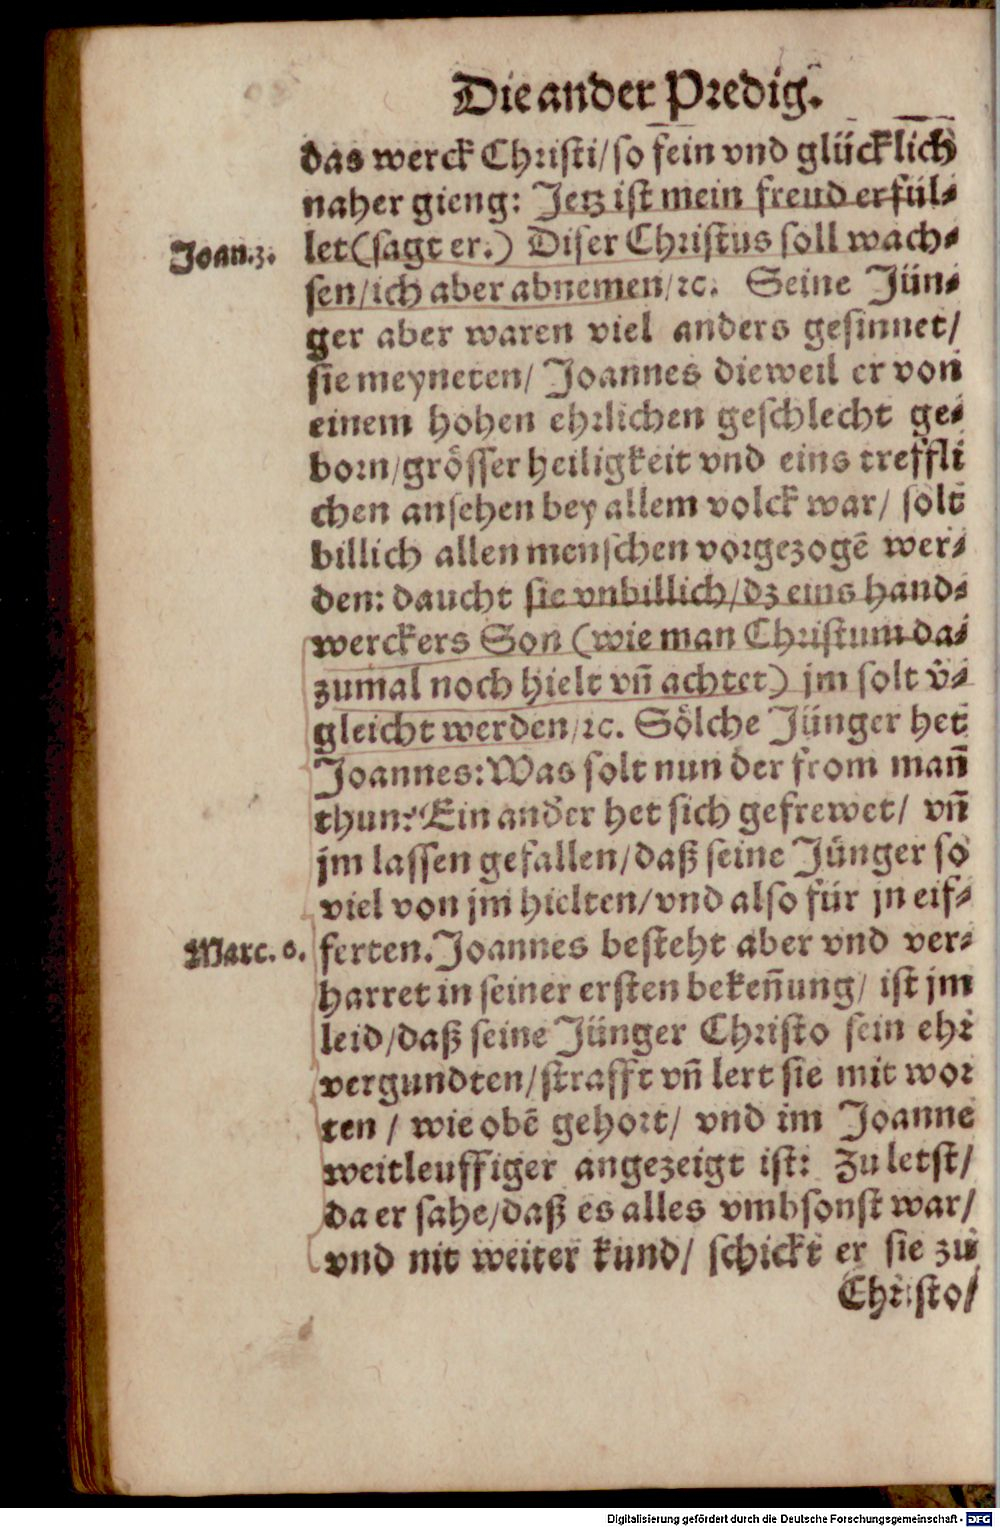 Die ander Predig.
das werck Christi/so fein vnd glücklich
naher gieng: Jetz ist mein freud erfül⸗
Joan.3.
let(sagt er.) Diser Christus soll wach⸗
sen/ich aber abnemen/ꝛc. Seine Jün⸗
ger aber waren viel anders gesinnet/
sie meyneten/ Joannes dieweil er von
einem hohen ehrlichen geschlecht ge⸗
born/grösser heiligkeit vnd eins treffli
chen ansehen bey allem volck war/ solt
billich allen menschen vorgezogē wer⸗
den: daucht sie vnbillich/dz eins hand⸗
werckers Son (wie man Christum da⸗
zumal noch hielt vñ achtet) jm solt v̄⸗
gleicht werden/ꝛc. Sölche Jünger het
Joannes: Was solt nun der from mañ
thun? Ein ander het sich gefrewet/ vñ
jm lassen gefallen/daß seine Jünger so
viel von jm hielten/vnd also für jn eif⸗
Marc. 6.
ferten. Joannes besteht aber vnd ver⸗
harret in seiner ersten bekeñung/ ist jm
leid/daß seine Jünger Christo sein ehr
vergundten/strafft vñ lert sie mit wor
ten / wie obē gehort/ vnd im Joanne
weitleuffiger angezeigt ist: Zu letst/
da er sahe/daß es alles vmbsonst war/
vnd nit weiter kund/ schickt er sie zu
Christo/
Digitalisierung gefördert durch die Deutsche Forschungsgemeinschaft - DFG